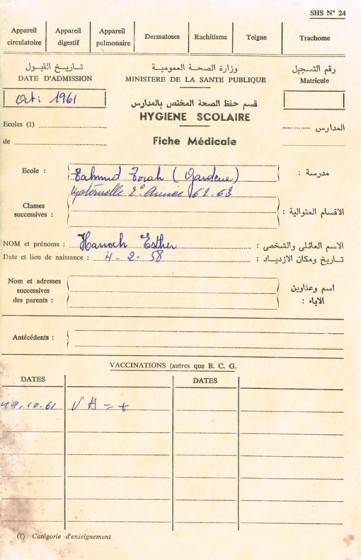 SHS N° 24
Appareil circulatoire
Appareil digestif
Appareil pulmonaire
Dermatoses
Rachitisme
Teigne
Trachome
تاريخ القبول
DATE D'ADMISSION
Oct: 1961
وزارة الصحة العمومية
MINISTERE DE LA SANTE PUBLIQUE
رقم التسجيل
Matricule
قسم حفظ الصحة المختص بالمدارس
HYGIENE SCOLAIRE
Ecoles (1)
المدارس
de
Fiche Médicale
Ecole : Talmud Torah ( Garderie) مدرسة :
Maternelle 2e Année 62-63
Classes successives :
الاقسام المتوالية :
NOM et prénoms : Hanoch Esther الاسم العائلي والشخصي :
Date et lieu de naissance : 4-2-58 تاريخ ومكان الازدياد :
Nom et adresses successives des parents :
اسم وعناوين الاباء :
Antécédents :
VACCINATIONS (autres que B. C. G.
DATES
DATES
19.10.61
(1) Catégorie d'enseignement